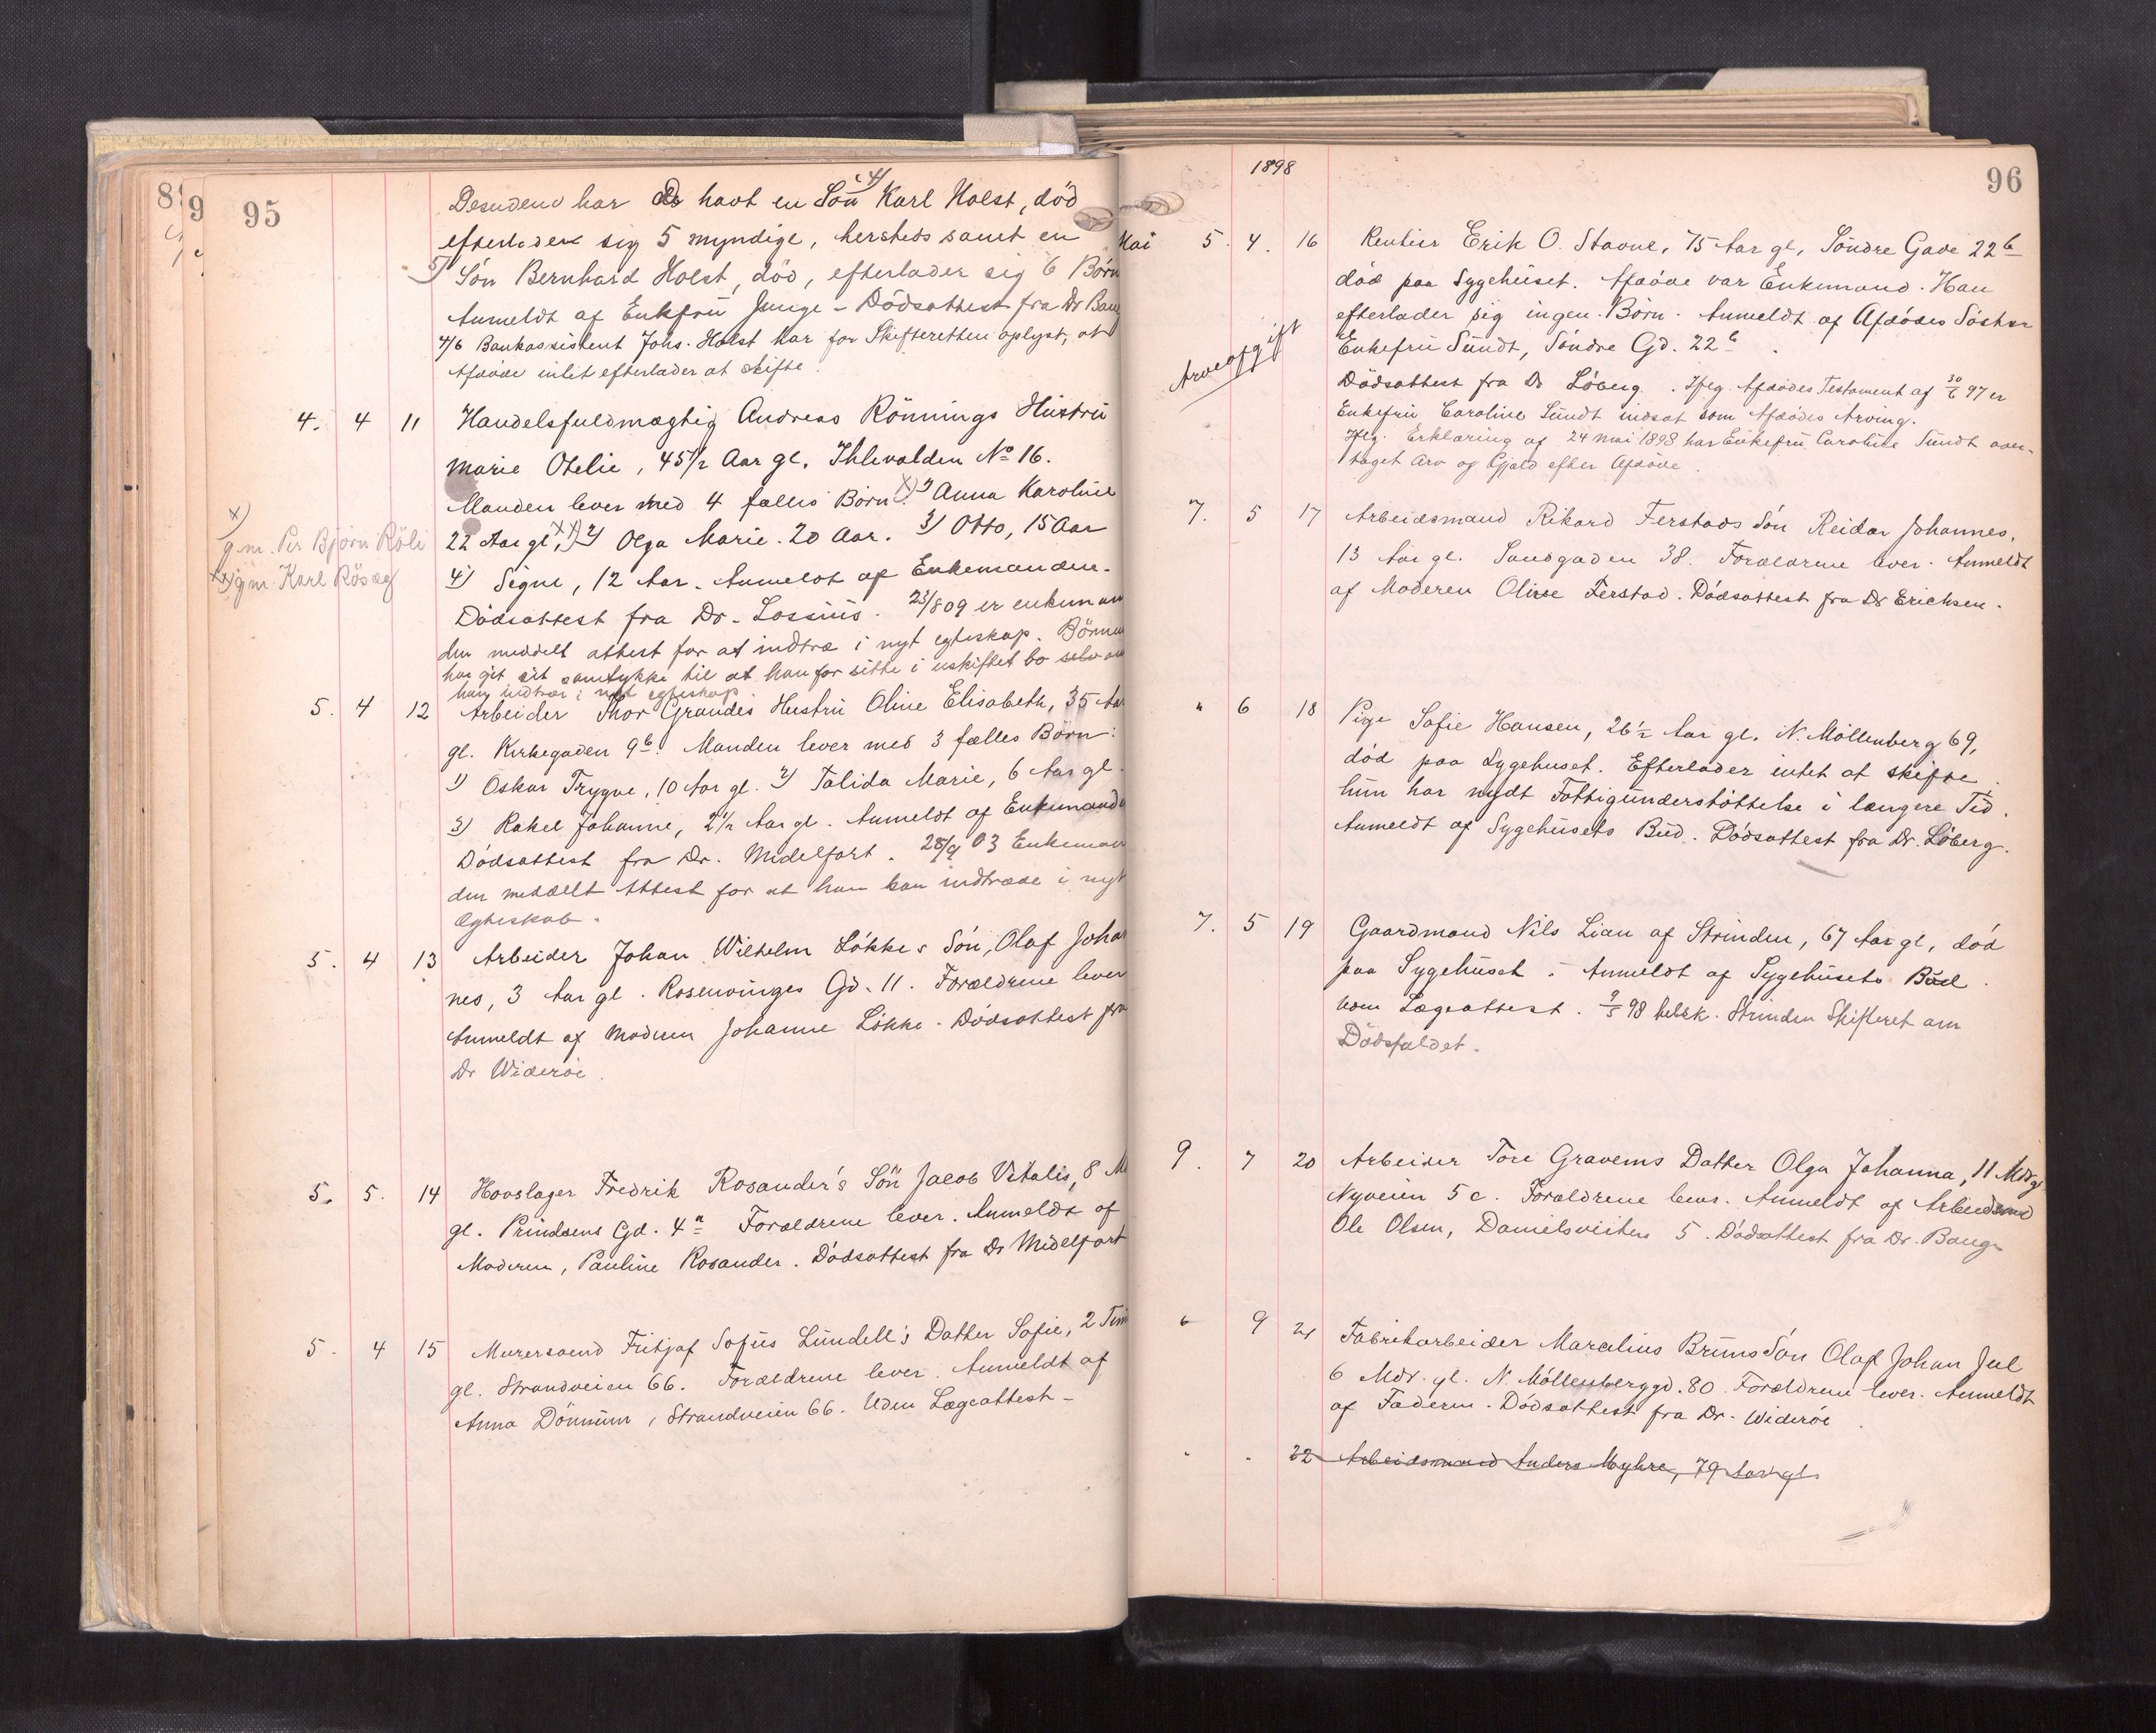 95
Desuden har De havt en Søn 4) Karl Holst, død
efterlader sig 5 myndige, hersteds samt en
5) Søn Bernhard Holst, død, efterlader sig 6 Børn
Anmeldt af Enkefru Junge - Dödsattest fra Dr Bau
4/6 Bankassistent Johs. Holst har for Skifteretten oplyst, at
Afdøde intet efterlader at skifte.
4. 4 11 Handelsfuldmægtig Andreas Rönnings Hustru
Marie Otelie, 45 1/2 Aar gl. Ihlevolden No 16.
Manden lever med 4 fælles Börn: x) 1) Anna Karoline
22 Aar gl., xx) 2) Olga Marie. 20 Aar. 3) Otto, 15 Aar
4) Signe, 12 Aar. Anmeldt af Enkemanden.
Dödsattest fra Dr. Lossius. 23/8 09 er enkeman
den meddelt attest for at indtræ i nyt egteskap. Börnene
har git sit samtykke til at han faar sitte i uskiftet bo selv om
han indtrær i nyt egteskap.
x)
g.m. Per Björn Röli
xx) g.m. Karl Rösæg
5. 4 12 Arbeider Thor Grandes Hustru Oline Elisabeth, 35 Aar
gl. Kirkegaden 9b. Manden lever med 3 fælles Börn:
1) Oskar Trygve, 10 Aar gl. 2) Talida Marie, 6 Aar gl.
3) Rakel Johanne, 2 1/2 Aar gl. Anmeldt af Enkemanden
Dödsattest fra Dr. Midelfart. 28/9 03 Enkeman
den meddelt Attest for at han kan indtræde i nyt
Ægteskab.
5. 4 13 Arbeider Johan Wilhelm Løkkes Søn, Olaf Johan
nes, 3 Aar gl. Rosenvinges Gd. 11. Forældrene lever
Anmeldt af Moderen Johanne Løkke. Dødsattest fra
Dr Widerøe.
5. 5. 14 Hovslager Fredrik Rosander's Sön Jacob Vitalis, 8 M
gl. Prindsens Gd. 4a Forældrene lever. Anmeldt af
Moderen, Pauline Rosander. Dödsattest fra Dr Midelfart
5. 4 15 Murersvend Fritjof Sofus Lundell's Datter Sofie, 2 Tim
gl. Strandveien 66. Forældrene lever. Anmeldt af
Anna Dönnum, Strandveien 66. Uden Lægeattest -
1898
96
Mai 5. 4. 16 Rentier Erik O. Stavne, 75 Aar gl, Söndre Gade 22b
død paa Sygehuset. Afdøde var Enkemand. Han
efterlader sig ingen Børn. Anmeldt af Afdødes Søster
Enkefru Sundt, Söndre Gd. 22b.
Arveafgift
Dödsattest fra Dr Löberg. Ifølg Afdødes Testament af 30/6 97 er
Enkefru Caroline Sundt indsat som Afdødes Arving.
Ifølg. Erklæring af 24 mai 1898 har Enkefru Caroline Sundt over-
taget Arv og Gjæld efter Afdøde.
7. 5 17 Arbeidsmand Rikard Ferstads Søn Reidar Johannes,
13 Aar gl. Sandgaden 38. Forældrene lever. Anmeldt
af Moderen Oline Ferstad. Dødsattest fra Dr Erichsen.
" 6 18 Pige Sofie Hansen, 26 1/2 Aar gl. N. Möllenberg 69,
död paa Sygehuset. Efterlader intet at skifte.
hun har nydt Fattigunderstöttelse i længere Tid.
Anmeldt af Sygehusets Bud. Dödsattest fra Dr. Löberg.
7. 5 19 Gaardmand Nils Lian af Strinden, 67 Aar gl, død
paa Sygehuset. Anmeldt af Sygehusets Bud.
uden Lægeattest. 9/5 98 Strinden Skifteret om
Dödsfaldet.
9. 7 20 Arbeider Tore Gravems Datter Olga Johanna, 11 Mdr gl
Nyveien 5 c. Forældrene lever. Anmeldt af Arbeidsmand
Ole Olsen, Danielsveiten 5. Dödsattest fra Dr. Bauge
6 9 21 Fabrikarbeider Marelius Bruns Søn Olaf Johan Jul
6 Mdr. gl. N. Möllenberggd. 80. Forældrene lever. Anmeldt
af Faderen. Dødsattest fra Dr. Widerøe.
" " 22 Arbeidsmand Anders Myhre, 79 Aar gl.